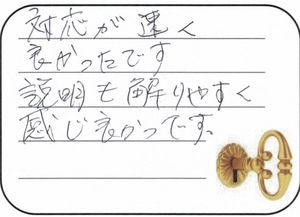 対応が速く
良かったです
説明も解りやすく
感じ良かつです。